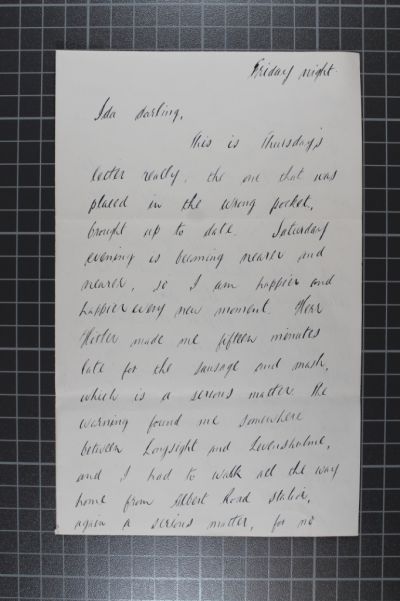 Friday night.
Ida darling,
This is Thursday's
letter really, the one that was
placed in the wrong pocket,
brought up to date. Saturday
evening is becoming nearer and
nearer, so I am happier and
happier every new moment. Herr
Hitler made me fifteen minutes
late for the sausage and mash,
which is a serious matter. The
warning found me somewhere
between Longsight and Levenshulme,
and I had to walk all the way
home from Albert Road station,
again a serious matter, for no